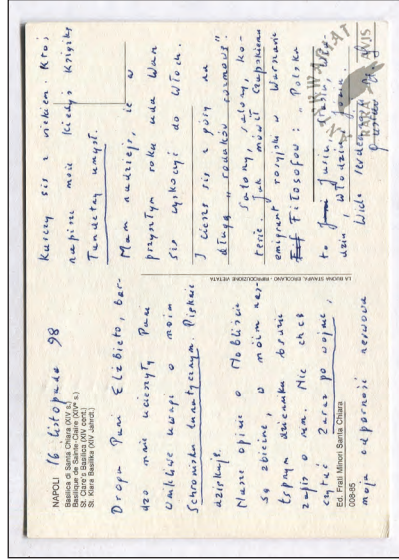 NAPOLI
16 listopada 98
Basilica di Santa Chiara (XIV s.)
Basilique de Sainte-Claire (XIVe s.)
St. Clare's Basilica (XIV cent.)
St. Klara Basilika (XIV Jahrd.)
Droga Pani Elżbieto, bar-
dzo mnie ucieszyły Pani
wnikliwe uwagi o moim
Schronisku lunatycznym. Pięknie
dziękuję.
Nasze opinie o Noblście
są zbieżne, o moim nas-
tępnym dzienniku
zapis o nim. Nie chcę
czytać Zaraz po wojnie,
moja odporność nerwowa
Ed. Frati Minori Santa Chiara
008-85
LA BUONA STAMPA, ERCOLANO - RIPRODUZIONE VIETATA
Kurczy się z wiekiem. Kto,
napisze może kiedyś książkę
Tandetny umysł.
Mam nadzieję, że w
przyszłym roku uda Wam
się wyskoczyć do Włoch.
I cieszę się z góry na
długą „rodaków rozmowę".
Salony, salony, ko-
terie. Jak mówił Czapskiemu
emigrant rosyjski w Warszawie
Fiłosofow: „Polska
to Julia, Julia,
Władzia, Józia.
Wiele serdeczności
INTERWARAT
RARA AVIS